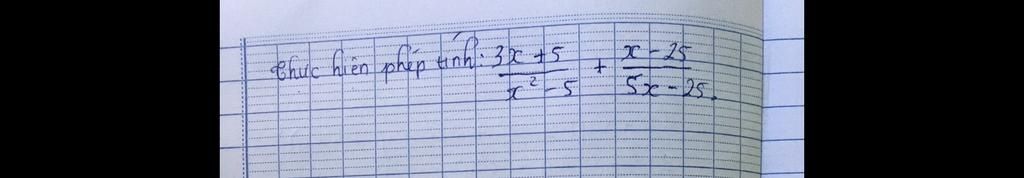 Thực hiện phép tính: \frac{3x+5}{x^2-5} + \frac{x-25}{5x-25}.